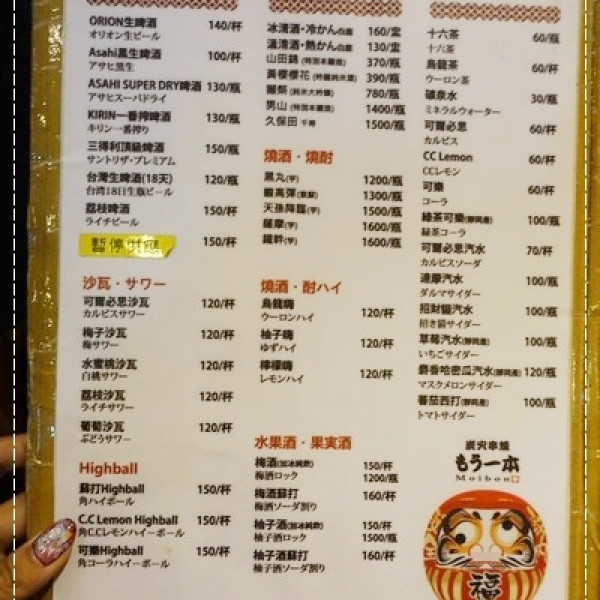 ORION生啤酒 140/杯
オリオン生ビール
Asahi黑生啤酒 100/杯
アサヒ黒生
ASAHI SUPER DRY啤酒 130/瓶
アサヒスーパドライ
KIRIN一番搾啤酒 130/瓶
キリン一番搾り
三得利頂級啤酒 150/瓶
サントリザ・プレミアム
台灣生啤酒(18天) 120/瓶
台湾18日生瓶ビール
荔枝啤酒 150/杯
ライチビール
暫停供應 150/杯
沙瓦・サワー
可爾必思沙瓦 120/杯
カルピスサワー
梅子沙瓦 120/杯
梅サワー
水蜜桃沙瓦 120/杯
白桃サワー
荔枝沙瓦 120/杯
ライチサワー
葡萄沙瓦 120/杯
ぶどうサワー
Highball
蘇打Highball 150/杯
角ハイボール
C.C Lemon Highball 150/杯
角C.Cレモンハイーボール
可樂Highball 150/杯
角コーラハイーボール
冰清酒・冷かん 160/壺
溫清酒・熱かん 130/壺
山田錦(特別本釀造) 370/瓶
黃櫻櫻花(吟釀純米酒) 390/瓶
獺祭(純米大吟釀) 780/瓶
男山(特別本釀造) 1400/瓶
久保田 千寿 1500/瓶
燒酒・焼酎
黑丸(芋) 1200/瓶
1300/瓶
天孫降臨(芋) 1500/瓶
薩摩(芋) 1600/瓶
(芋) 1600/瓶
燒酒・酎ハイ
烏龍嗨 120/杯
ウーロンハイ
柚子嗨 120/杯
ゆずハイ
檸檬嗨 120/杯
レモンハイ
水果酒・果実酒
梅酒(加冰純飲) 150/杯
梅酒ロック 1200/瓶
梅酒蘇打 160/杯
梅酒ソーダ割り
柚子酒(加冰純飲) 150/杯
柚子酒ロック 1500/瓶
柚子酒蘇打 160/杯
柚子酒ソーダ割り
十六茶 60/瓶
十六茶
烏龍茶 60/杯
ウーロン茶
礦泉水 30/瓶
ミネラルウォーター
可爾必思 60/杯
カルピス
CC Lemon 60/杯
CCレモン
可樂 60/杯
コーラ
綠茶可樂(靜岡産) 100/瓶
緑茶コーラ
可爾必思汽水 70/杯
カルピスソーダ
達摩汽水 100/瓶
ダルマサイダー
招財貓汽水 100/瓶
招き猫サイダー
草莓汽水(靜岡産) 100/瓶
いちごサイダー
麝香哈密瓜汽水(靜岡産) 120/瓶
マスクメロンサイダー
蕃茄西打(靜岡産) 100/瓶
トマトサイダー
炭火串燒
もう一本
Moibon
福